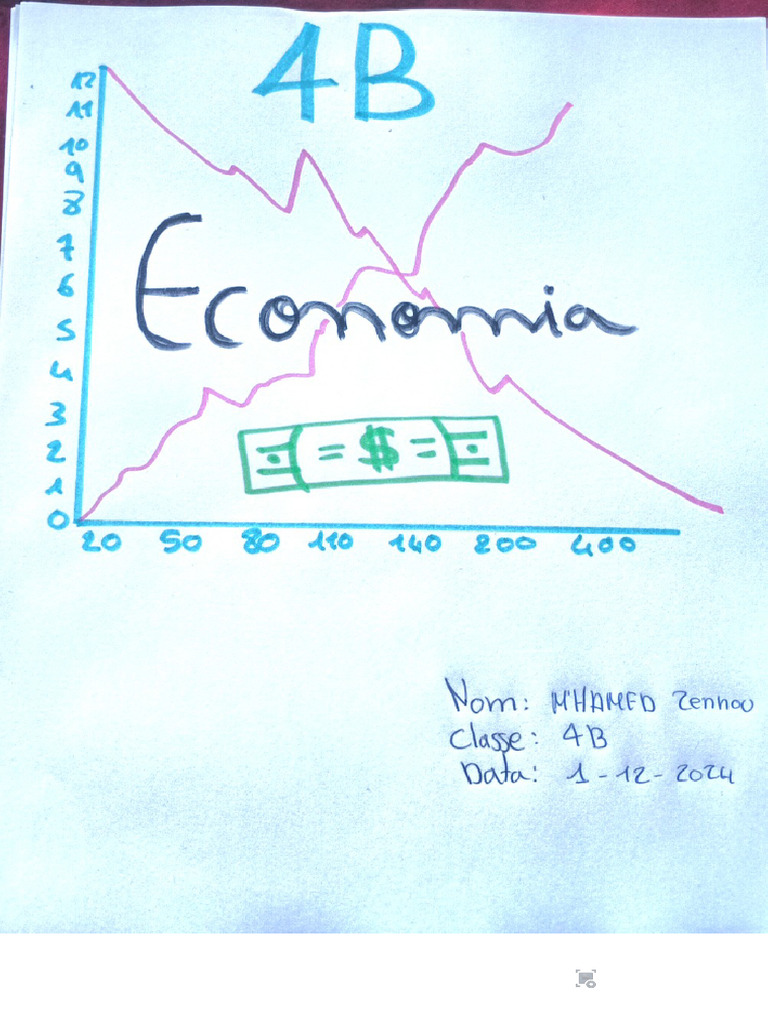 4B
12
11
10
9
8
7
6
5
4
3
2
1
0
Economia
= $ =
20 50 80 110 140 200 400
Nom: M'HAMED Zennou
Classe: 4B
Data: 1-12-2024